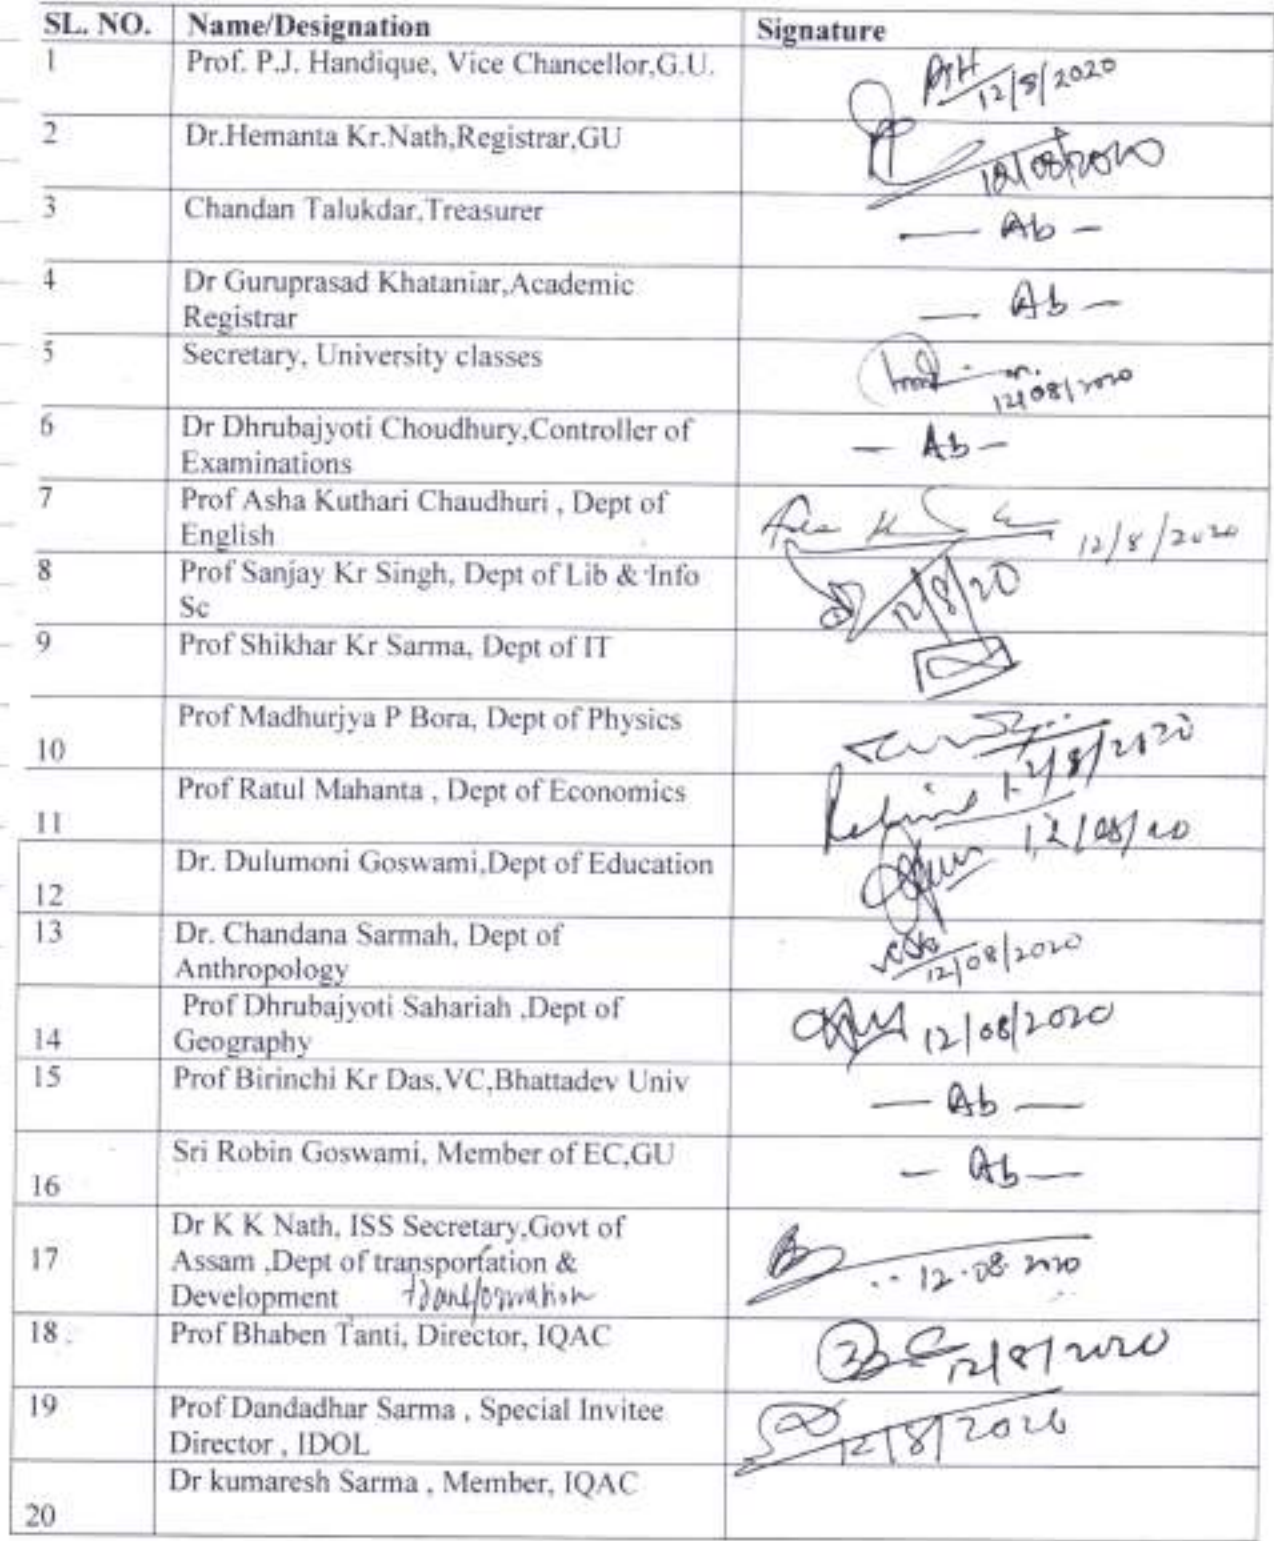 SL. NO. Name/Designation Signature
1 Prof. P.J. Handique, Vice Chancellor,G.U.
12/8/2020
2 Dr.Hemanta Kr.Nath,Registrar,GU
12/08/2020
3 Chandan Talukdar,Treasurer — Ab –
4 Dr Guruprasad Khataniar,Academic
Registrar — Ab –
5 Secretary, University classes
12/08/2020
6 Dr Dhrubajyoti Choudhury,Controller of
Examinations – Ab –
7 Prof Asha Kuthari Chaudhuri , Dept of
English 12/8/2020
8 Prof Sanjay Kr Singh, Dept of Lib & Info
Sc 12/8/20
9 Prof Shikhar Kr Sarma, Dept of IT
Prof Madhurjya P Bora, Dept of Physics
10 12/8/2020
Prof Ratul Mahanta , Dept of Economics
11 12/08/20
Dr. Dulumoni Goswami,Dept of Education
12
13 Dr. Chandana Sarmah, Dept of
Anthropology 12/08/2020
Prof Dhrubajyoti Sahariah ,Dept of
14 Geography 12/08/2020
15 Prof Birinchi Kr Das,VC,Bhattadev Univ
— Ab —
Sri Robin Goswami, Member of EC,GU – Ab —
16
Dr K K Nath, ISS Secretary,Govt of
17 Assam ,Dept of transportation &
12.08.2020
Development transformation
18 . Prof Bhaben Tanti, Director, IQAC
12/8/2020
19 Prof Dandadhar Sarma , Special Invitee
Director , IDOL 12/8/2020
Dr kumaresh Sarma , Member, IQAC
20